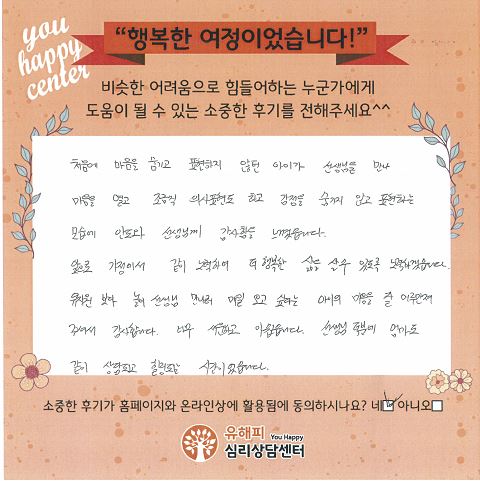 you
happy
center
“행복한 여정이었습니다!”
비슷한 어려움으로 힘들어하는 누군가에게
도움이 될 수 있는 소중한 후기를 전해주세요^^
처음에 마음을 숨기고 표현하지 않던 아이가 선생님을 만나
마음을 열고 조금씩 의사표현도 하고 감정을 숨기지 않고 표현하는
모습에 안도와 선생님께 감사함을 느꼈습니다.
앞으로 가정에서 같이 노력하여 더 행복한 삶을 살 수 있도록 노력하겠습니다.
유치원 보다 놀이 선생님 만나러 매일 오고 싶다는 아이의 마음을 잘 어루만져
주셔서 감사합니다. 너무 서운하고 아쉽습니다. 선생님 덕분에 엄마도
같이 상담하고 힐링되는 시간이었습니다.
소중한 후기가 홈페이지와 온라인상에 활용됨에 동의하시나요? 네 아니오
유해피 You Happy
심리상담센터